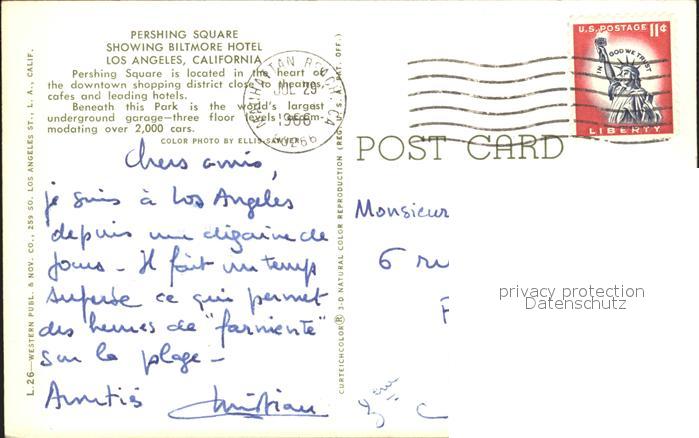 PERSHING SQUARE
SHOWING BILTMORE HOTEL
LOS ANGELES, CALIFORNIA
Pershing Square is located in the heart of
the downtown shopping district close to theatres,
cafes and leading hotels.
Beneath this Park is the world's largest
underground garage—three floor levels accom-
modating over 2,000 cars.
COLOR PHOTO BY ELLIS-SAWYER
MANHATTAN BEACH, CA
JUL 29
1966
90266
U.S. POSTAGE 11¢
IN GOD WE TRUST
LIBERTY
POST CARD
L.26—WESTERN PUBL. & NOV. CO., 259 SO. LOS ANGELES ST., L. A., CALIF.
CURTEICHCOLOR® 3-D NATURAL COLOR REPRODUCTION (REG. U.S.A. PAT. OFF.)
Chers amis,
je suis à Los Angeles
depuis une dizaine de
jours - Il fait un temps
superbe ce qui permet
des heures de "farniente"
sur la plage -
Amitiés
Christian
Monsieur
6 ru
privacy protection
Datenschutz